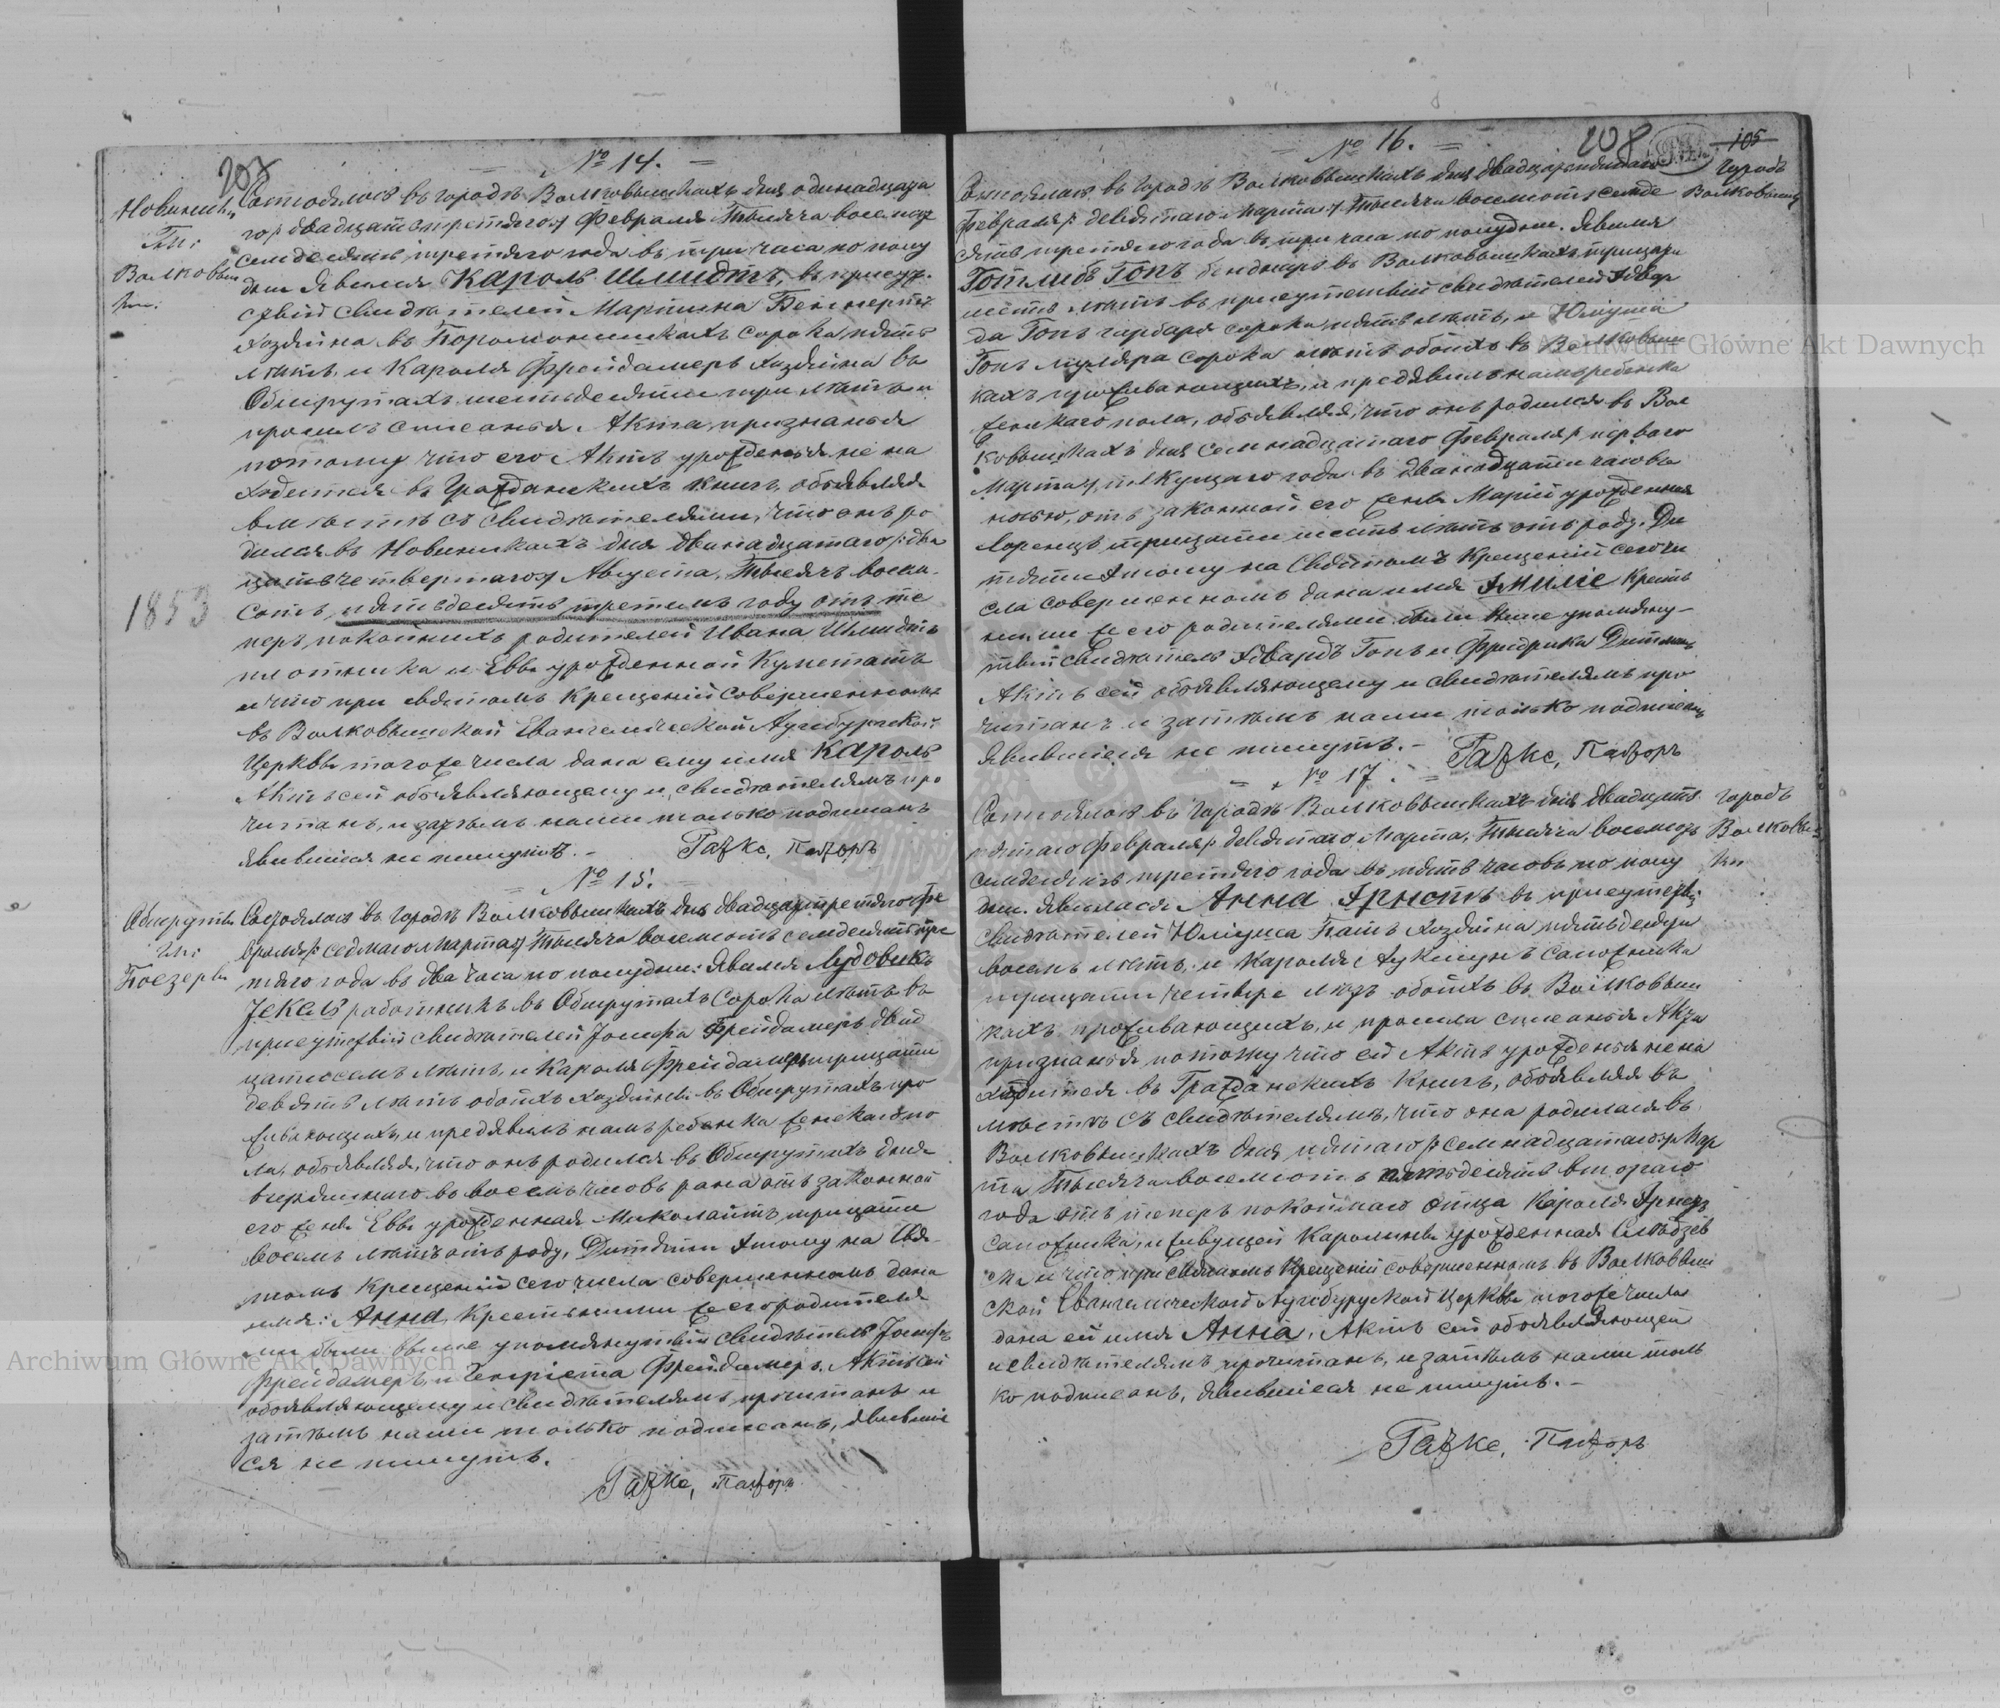 207
№ 14.
Новиники
Гм:
Волковыш
ки:
Состоялось въ городѣ Волковышкахъ дня одинадцата
го /: двадцать третяго :/ Февраля Тысяча восемсотъ
семдесять третяго года въ три часа по полу
дни Явился Кароль Шмидтъ, въ присут
ствіи свидѣтелей Мартина
хозяина въ сорока пять
лѣтъ, и Кароля Фрейдамеръ хозяина въ
Обшрутахъ шестьдесяти три лѣтъ и
просилъ списанья Акта признанья
потому что его Актъ урожденья не на
ходится въ Гражданскихъ книгъ, объявляя
вмѣстѣ съ свидѣтелями, что онъ ро
дился въ Новиникахъ дня двѣнадцатаго /: два
цать четвертаго :/ Августа, Тысячъ восем
1853
сотъ, пятьдесятъ третьимъ году отъ те
перъ покойныхъ родителей Ивана Шмидтъ
плотника и Евы урожденной
и что при святомъ Крещеніи совершенномъ
въ Волковышской Евангелической Аугсбургской
Церквы тогоже числа дана ему имя Кароль
Актъ сей объявляющему и свидѣтелямъ про
читанъ, и затѣмъ нами только подписанъ
явившіися не пишутъ. –
Гажке, Пасторъ
№ 15.
Обшруты
гм:
Поезеры
Состоялось въ городѣ Волковышкахъ дня двадцать третяго Фе
враля /: седмаго Марта :/ Тысяча восемсотъ семдесятъ тре
тяго года въ два часа по полудни: Явился Лудовикъ
Жекель работникъ въ Обшрутахъ сорока лѣтъ въ
присутствіи свидѣтелей Іосифа Фрейдамеръ двад
цатьосемъ лѣтъ, и Кароля Фрейдамеръ трицати
девять лѣтъ обоихъ хозяины въ Обшрутахъ про
живающихъ, и предявилъ намъ ребенка женскаго по
ла, объявляя, что онъ родился въ Обшрутахъ дня
вчерашнаго въ восемъ часовъ рана отъ законной
его жены Евы урожденная Миколайтъ, трицати
восемъ лѣтъ отъ роду, Дитяти этому на Свя
томъ Крещеніи сего числа совершенномъ дана
имя: Анна, Крестными же его родителя
ми были выше упомянутый свидѣтель Іосифъ
Фрейдамеръ и Генріета Фрейдамеръ. Актъ сей
объявляющему и свидѣтелямъ прочитанъ и
затѣмъ нами только подписанъ, явившіи
ся не пишутъ.
Гажке, Пасторъ
№ 16.
208
105
городъ
Волковышки
Состоялось въ городѣ Волковышкахъ дня двадцать пятаго
Февраля /: девятаго Марта :/ Тысяча восемсотъ семде
сятъ третяго года въ три часа по полудни. Явился
Готлибъ Гопъ бенднаръ въ Волковышкахъ трицати
шесть лѣтъ въ присутствіи свидѣтелей Эдвар
да Гопъ гарбаря сорока пять лѣтъ, и Юліуша
Гопъ муляра сорока лѣтъ обоихъ въ Волковыш
кахъ проживающихъ, и предявилъ намъ ребенка
женскаго пола, объявляя, что онъ родился въ Вол
ковышкахъ дня семнадцатаго Февраля /: перваго
Марта :/ текущаго года въ двѣнадцати часовъ
ночью, отъ законной его жены Маріи урожденная
Лоренцъ трицати шесть лѣтъ отъ роду. Ди
тяти этому на Святомъ Крещеніи сего чи
сла совершенномъ дана имя Эмиліе Крест
ными же его родителями были выше упомяну
тый свидѣтель Эдвардъ Гопъ и Фридрика
Актъ сей объявляющему и свидѣтелямъ про
читанъ и затѣмъ нами только подписанъ
явившіися не пишутъ. –
Гажке, Пасторъ
№ 17.
городъ
Волковыш
ки
Состоялось въ городѣ Волковышкахъ дня двадцать
пятаго Февраля /: девятаго Марта, Тысяча восемсотъ
семдесятъ третяго года въ пять часовъ по полу
дни. Явилася Анна Эрнстъ въ присутстві
свидѣтелей Юліуса хозяина пятьдесяти
восемъ лѣтъ, и Кароля сапожника
трицати четыре лѣтъ обоихъ въ Волковыш
кахъ проживающихъ, и просила списанья Акта
признанья потому что ей Актъ урожденья не на
ходится въ Гражданскихъ Книгъ, объявляя въ
мѣстѣ съ свидѣтелямъ, что она родилася въ
Волковышкахъ дня пятаго /: семнадцатаго :/ Мар
та Тысяча восемсотъ пятьдесятъ втораго
года отъ теперъ покойнаго отца Кароля Эрнстъ
сапожника, и живущей Каролины урожденная
и что при святомъ Крещеніи совершенномъ въ Волковыш
ской Евангелической Аугсбургской Церквы тогоже числа
дана ей имя Анна, Актъ сей объявляющей
и свидѣтелямъ прочитанъ, и затѣмъ нами толь
ко подписанъ, явившіися не пишутъ. –
Гажке, Пасторъ
Archiwum Główne Akt Dawnych
Archiwum Główne Akt Dawnych